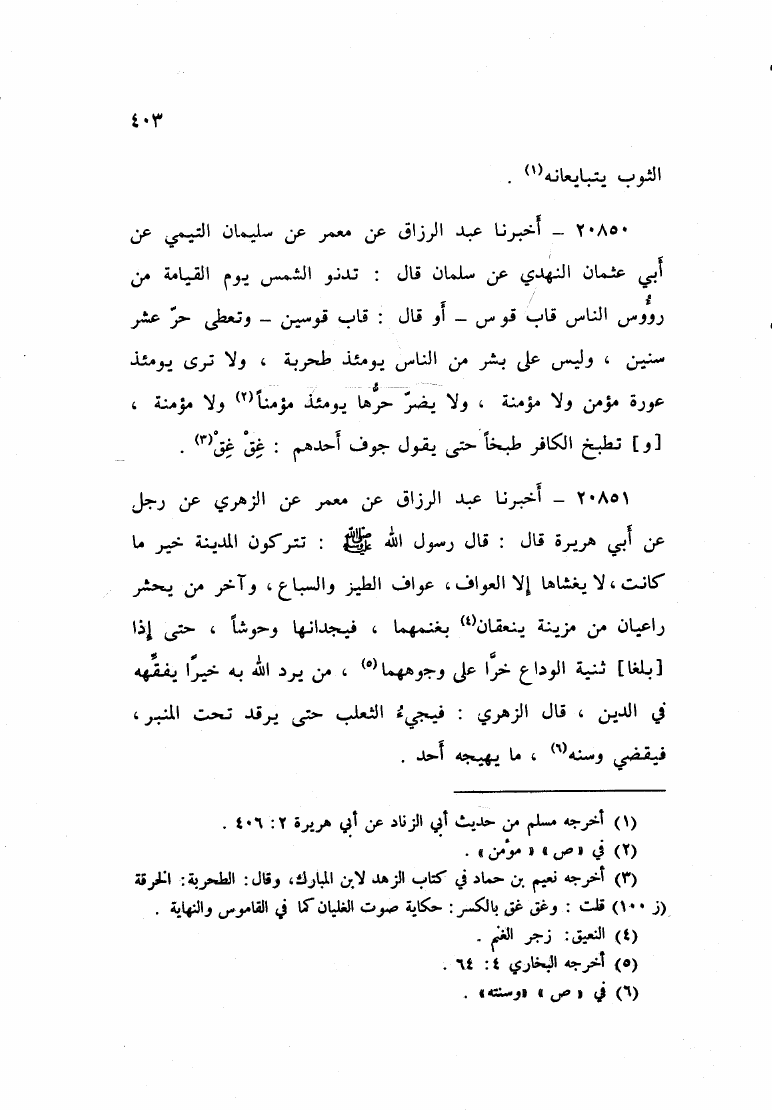 ٤٠٣
الثوب يتبايعانه(١) .
٢٠٨٥٠ – أخبرنا عبد الرزاق عن معمر عن سليمان التيمي عن
أبي عثمان النهدي عن سلمان قال : تدنو الشمس يوم القيامة من
رؤُوس الناس قاب قوس – أو قال : قاب قوسين – وتعطى حرّ عشر
سنين ، وليس على بشر من الناس يومئذ طحربة ، ولا ترى يومئذ
عورة مؤمن ولا مؤمنة ، ولا يضرّ حرُّها يومئذ مؤمناً(٢) ولا مؤمنة ،
[و] تطبخ الكافر طبخاً حتى يقول جوف أحدهم : غِقْ غِقْ(٣) .
٢٠٨٥١ – أخبرنا عبد الرزاق عن معمر عن الزهري عن رجل
عن أبي هريرة قال : قال رسول الله ﷺ : تتركون المدينة خير ما
كانت، لا يغشاها إلا العواف ، عواف الطيز والسباع ، وآخر من يحشر
راعيان من مزينة ينعقان(٤) بغنمهما ، فيجدانها وحوشاً ، حتى إذا
[بلغا] ثنية الوداع خرَّا على وجوههما(٥) ، من يرد الله به خيرًا يفقّهه
في الدين ، قال الزهري : فيجيءُ الثعلب حتى يرقد تحت المنبر ،
فيقضي وسنه(٦) ، ما يهيجه أحد .
(١) أخرجه مسلم من حديث أبي الزناد عن أبي هريرة ٢: ٤٠٦ .
(٢) في « ص » « مؤمن » .
(٣) أخرجه نعيم بن حماد في كتاب الزهد لابن المبارك، وقال : الطحربة : الخرقة
(ز ١٠٠) قلت : وغق غق بالكسر : حكاية صوت الغليان كما في القاموس والنهاية .
(٤) النعيق: زجر الغنم .
(٥) أخرجه البخاري ٤: ٦٤ .
(٦) في « ص » «وسنته» .